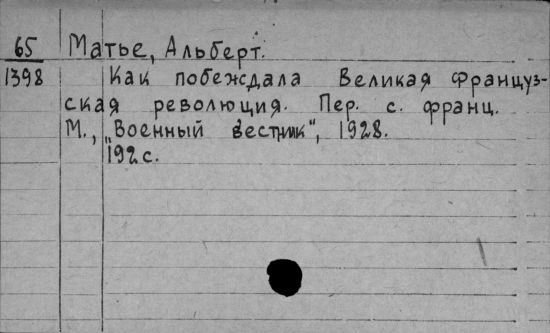 65 Матье, Альберт.
1398 Как побеждала Великая француз-
ская революция. Пер. с. франц.
М., "Военный вестник", 1928.
192 с.